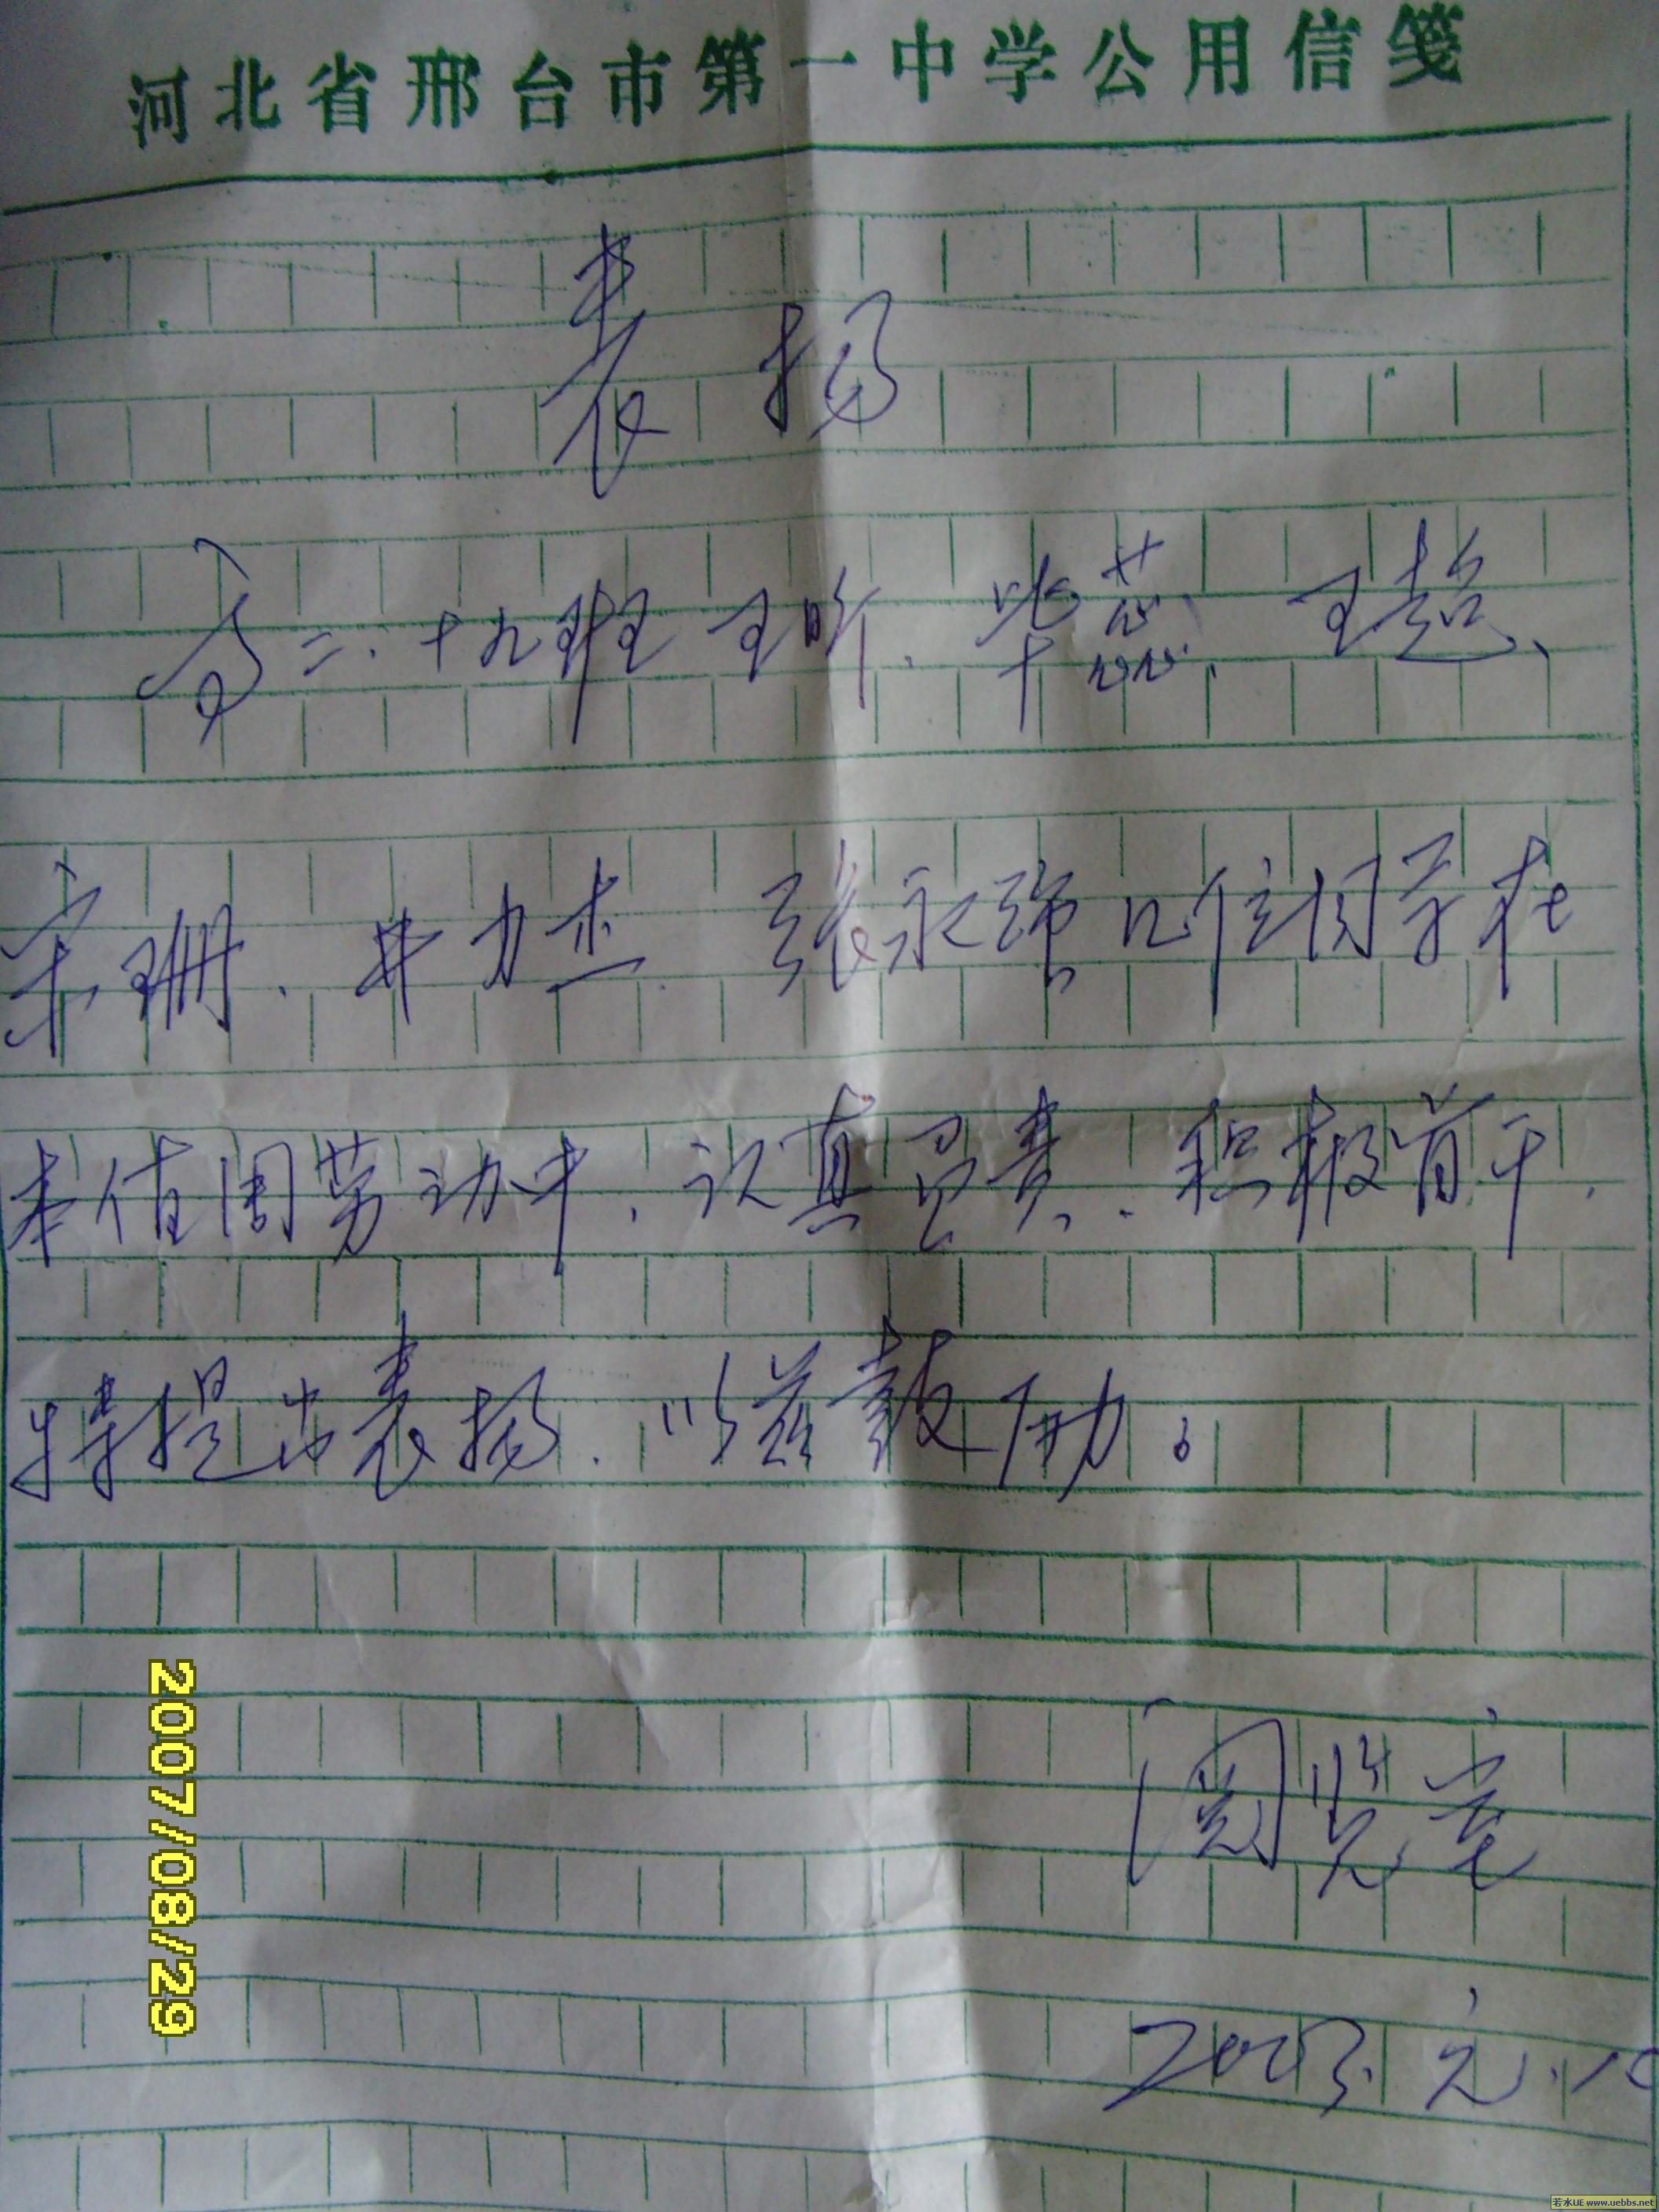 河北省邢台市第一中学公用信笺
表扬
高二.十九班王昕、毕蕊、王超、
宋珊、井力杰、张永强几位同学在
本值周劳动中,认真负责、积极肯干,
特提出表扬,以兹鼓励。
阅览室
2003.元.10
2007/08/29
若水UE www.uebbs.net